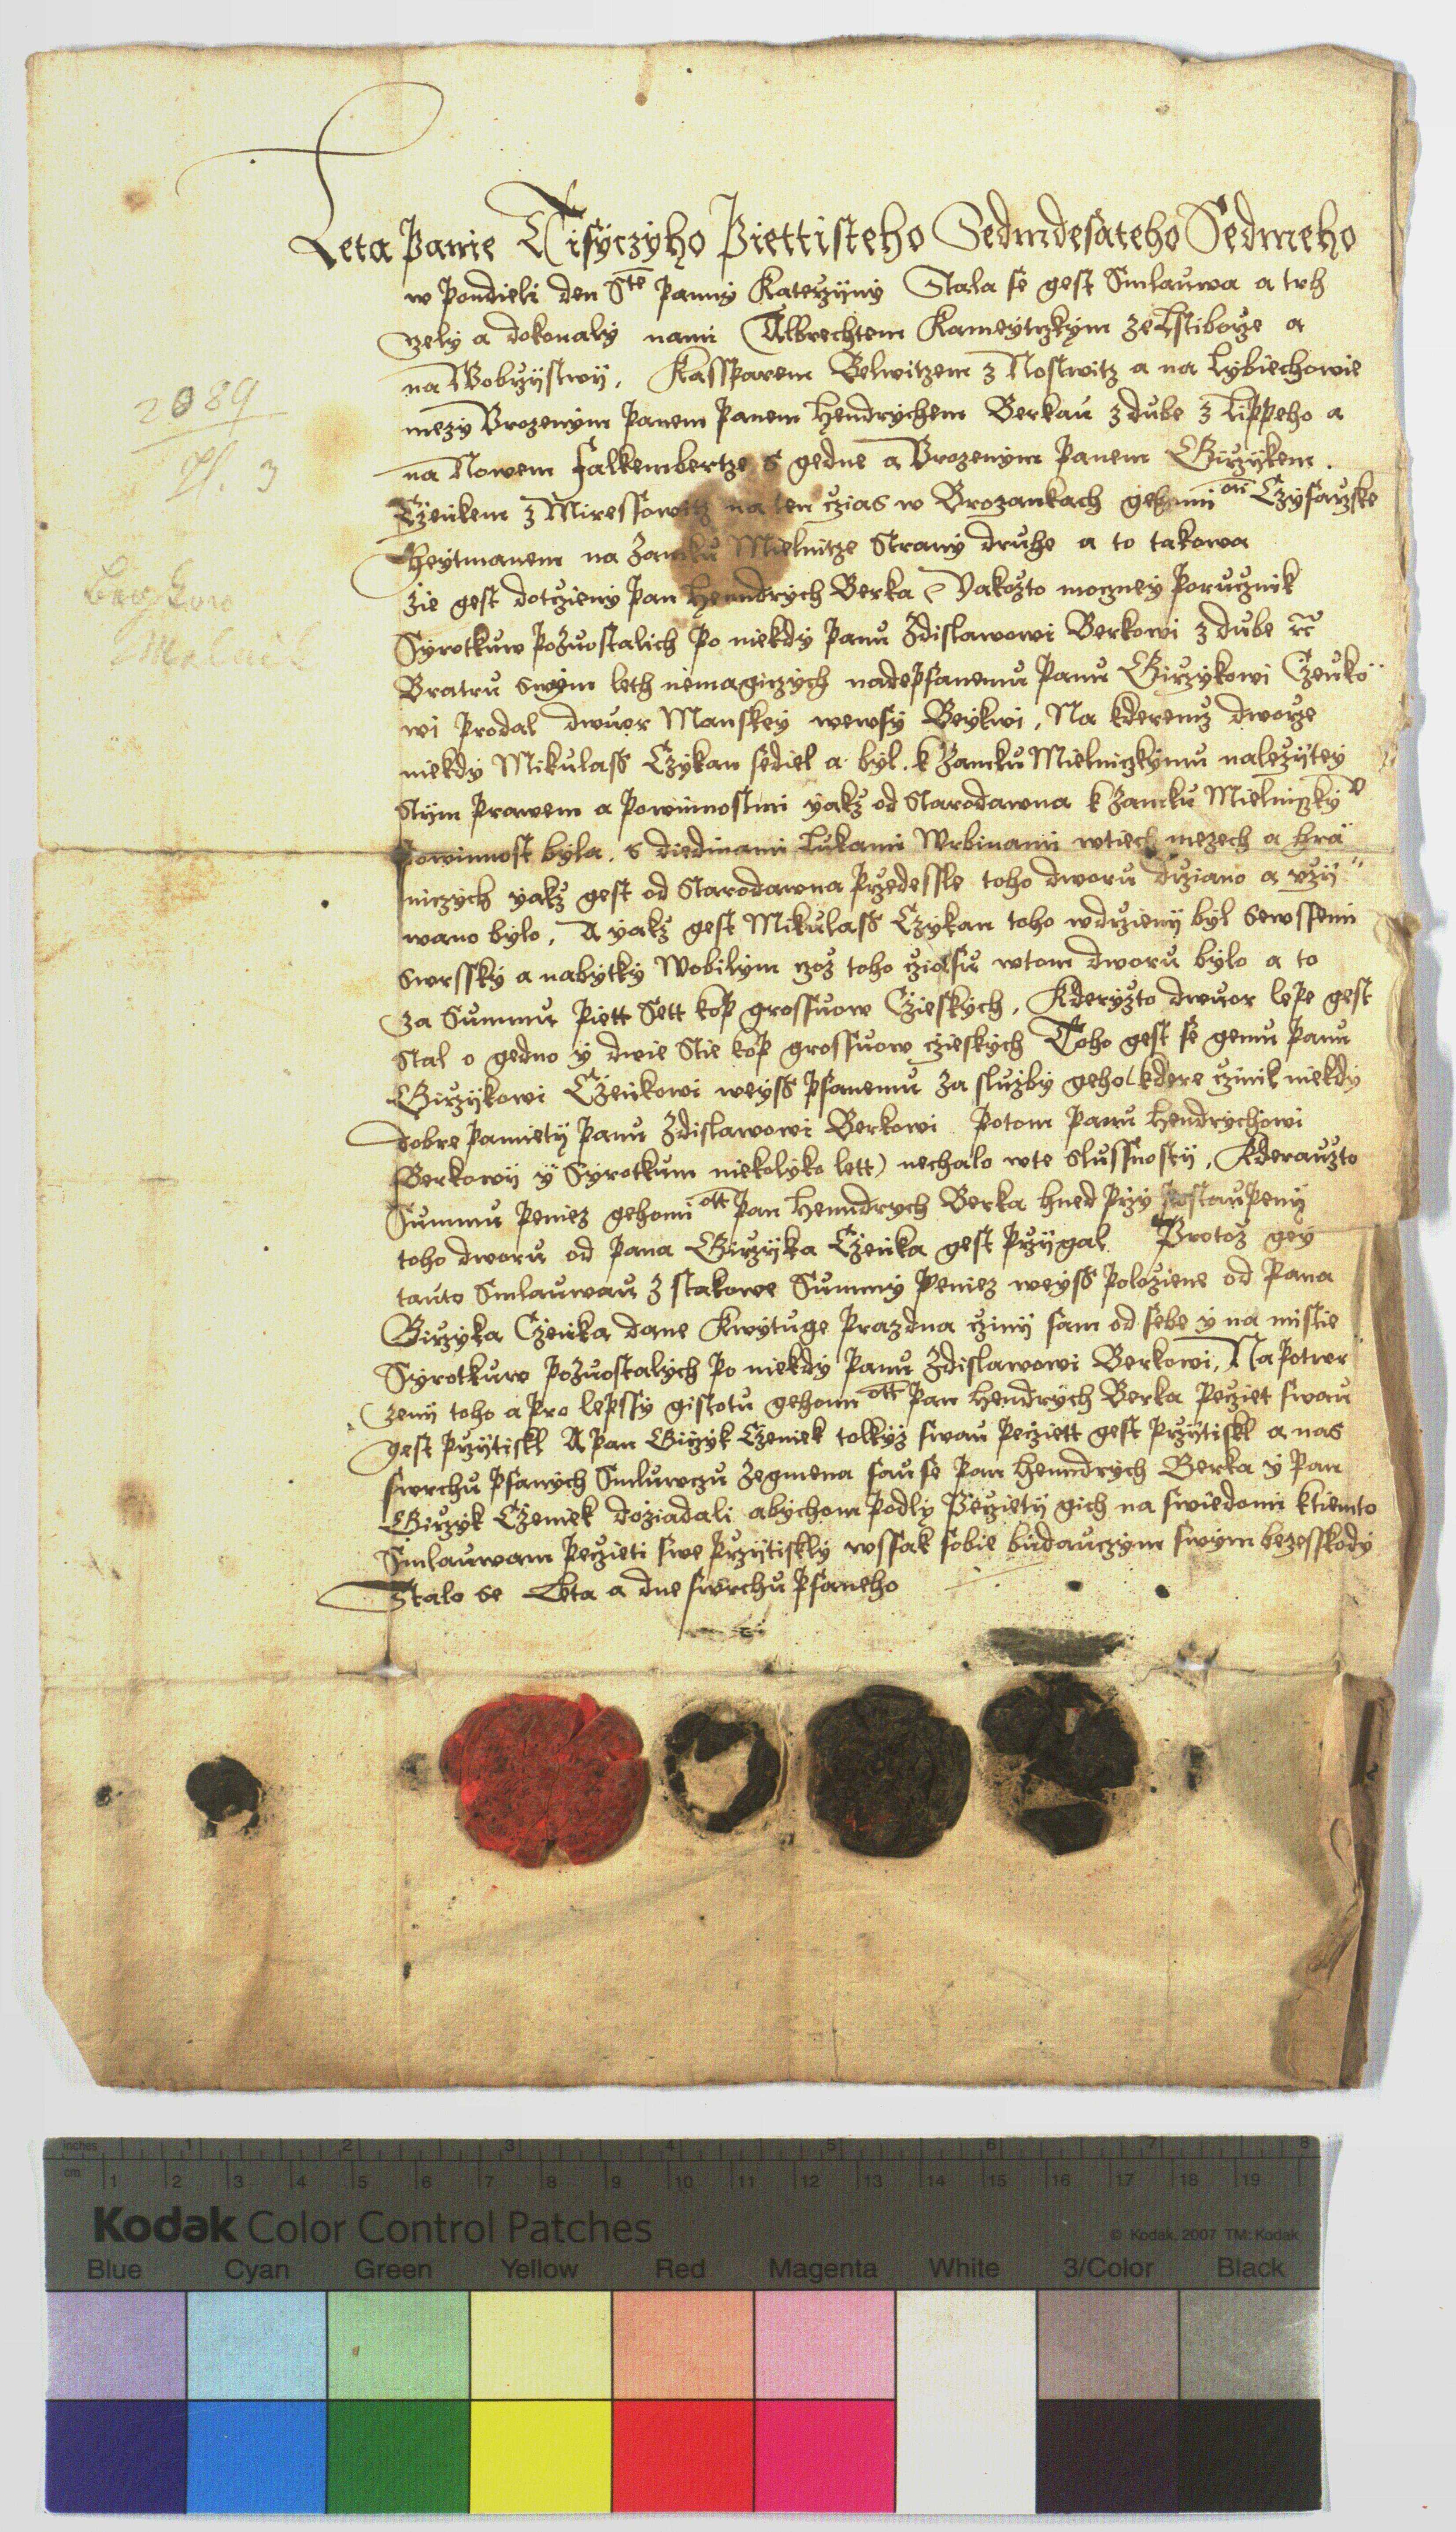 Leta Panie Tisyczyho Piettisteho Sedmdesateho Sedmeho
w Pondieli den Ste Panny Katerzyny Stala se gest Smlauwa a trh
czely a dokonaly nami Albrechtem Kameytczkym ze Lstiborze a
na Wobrzystwy, Kassparem Belwitzem z Nostwitz a na Lybiechowie
mezy Vrozenym Panem Panem Hendrychem Berkau z dube z Lippeho a
na Nowem Falkembertze s gedne a Vrozenym Panem Girzykem
Czenkem z Miressowitz na ten czias w Brozankach gehomi on Czysarzske
Heytmanem na Zamku Mielnitze Strany druhe a to takowa
zie gest dotczieny Pan Henndrych Berka Yakozto moczney Porucznik
Syrotkuw Pozuostalich Po niekdy Panu Zdislawowi Berkowi z dube rc
Bratru swym leth nemagiczych nadepsanemu Panu Girzykowi Czenko
wi Prodal dwuor Manskey wewsy Beykwi, Na kderemz dworze
niekdy Mikulass Czykan sediel a byl k Zamku Mielniczkymu nalezytey
stym Prawem a Powinnostmi yakz od Starodawna k Zamku Mielniczky v
Powinnost byla, s diedinami Lukami Wrbinami wtiech mezech a hra
niczych yakz gest od Starodawna Przedessle toho dworu drziano a vzy
wano bylo, A yakz gest Mikulass Czykan toho wdrzieny byl Sewssemi
Swrssky a nabytky Mobilym czoz toho cziasu wtom dworu bylo a to
za Summu Piett Sett kop grossuow Czieskych, Kderyzto dwuor lepe gest
stal o gedno y dwie Stie kop grossuow czieskych Toho gest se gemu Panu
Girzykowi Czenkowi weyss Psanemu za sluzby geho (kdere czinil niekdy
dobre Pamiety Panu Zdislawowi Berkowi Potom Panu Hendrychowi
Berkowy y Syrotkum niekolyko lett) nechalo wte slussnosty, Kderauzto
Summu Peniez gehomi ott Pan Henndrych Berka hned Przy postaupeny
toho dworu od Pana Girzyka Czenka gest Przygal Protoz gey
tauto Smlauwau z stakowe Summy Peniez weyss Poloziene od Pana
Girzyka Czenka dane Kwytuge Prazdna cziny sam od sebe y na mistie
Syrotkuw Pozuostalych Po niekdy Panu Zdislawowi Berkowi, Na Potwr
zeny toho a Pro lepssy gistotu gehomi ott Pan Hendrych Berka Pecziet swau
gest Przytiskl A Pan Girzyk Czeniek tolkyz swau Pecziett gest Przytiskl a nas
swrchu Psanych Smluwczu Zegmena sau se Pan Henndrych Berka y Pan
Girzyk Czeniek doziadali abychom Podly Pecziety gich na swiedomi ktiemto
Smlauwam Peczieti swe Przytiskly wssak sobie budauczym swym bezesskody
Stalo se Leta a dne swrchu Psaneho
2089
Pf. 3
Melnik
inches 1 2 3 4 5 6 7 8
cm 1 2 3 4 5 6 7 8 9 10 11 12 13 14 15 16 17 18 19
Kodak Color Control Patches © Kodak, 2007 TM: Kodak
Blue Cyan Green Yellow Red Magenta White 3/Color Black